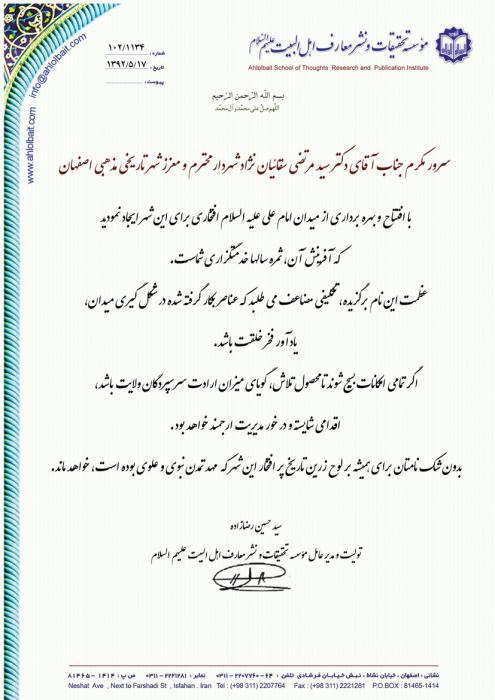 مؤسسه تحقیقات و نشر معارف اهل البیت علیهم السلام
Ahlolbait School of Thoughts Research and Publication Institute
شماره: ۱۰۲/۱۱۳۴
تاریخ: ۱۳۹۲/۵/۱۷
پیوست:
www.ahlolbait.com info@ahlolbait.com
بسم الله الرحمن الرحیم
اللهم صل علی محمد و آل محمد
سرور مکرم جناب آقای دکتر سید مرتضی سقائیان نژاد شهردار محترم و معزز شهر تاریخی مذهبی اصفهان
با افتتاح و بهره برداری از میدان امام علی علیه السلام افتخاری برای این شهر ایجاد نمودید
که آفرینش آن، ثمره سالها خدمتگزاری شماست.
عظمت این نام برگزیده، تکلیفی مضاعف می طلبد که عناصر بکار گرفته شده در شکل گیری میدان،
یادآور فخر خلقت باشد.
اگر تمامی امکانات بسیج شوند تا محصول تلاش، گویای میزان ارادت سرسپردگان ولایت باشد،
اقدامی شایسته و در خور مدیریت ارجمند خواهد بود.
بدون شک نامتان برای همیشه بر لوح زرین تاریخ پر افتخار این شهر که مهد تمدن نبوی و علوی بوده است، خواهد ماند.
سید حسین رضازاده
تولیت و مدیر عامل مؤسسه تحقیقات و نشر معارف اهل البیت علیهم السلام
نشانی: اصفهان، خیابان نشاط، نبش خیابان فرشادی تلفن: ۶۴ - ۲۲۰۷۷۶۰ - ۰۳۱۱ نمابر: ۲۲۲۱۲۸۱ - ۰۳۱۱ ص پ: ۱۴۱۴ - ۸۱۴۶۵
Neshat Ave , Next to Farshadi St , Isfahan . Iran Tel : (+98 311) 2207764 Fax : (+98 311) 2221281 P.O.BOX : 81465-1414